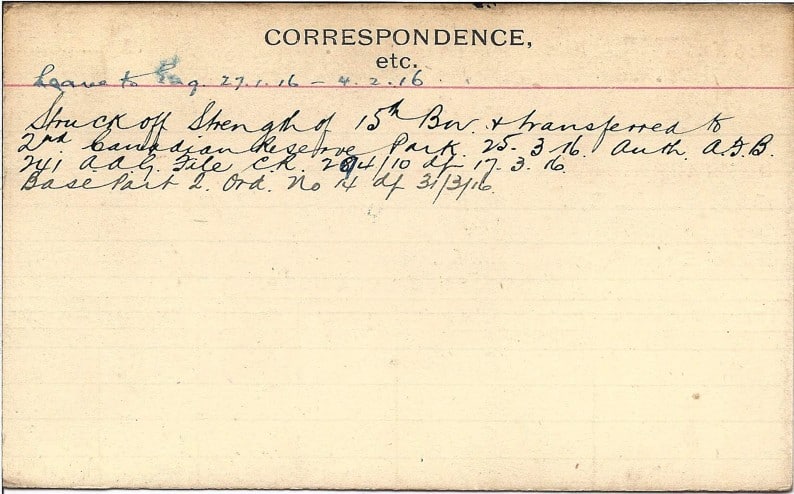 CORRESPONDENCE,
etc.
Leave to Eng. 27.1.16 - 4.2.16.
Struck off Strength of 15th Bn. & transferred to
2nd. Canadian Reserve Park. 25-3-16. Auth. A.F.B
241 A.A.G. File C.R. 2694/10 df 17.3.16.
Base Part 2. Ord. No 14 df 31/3/16.